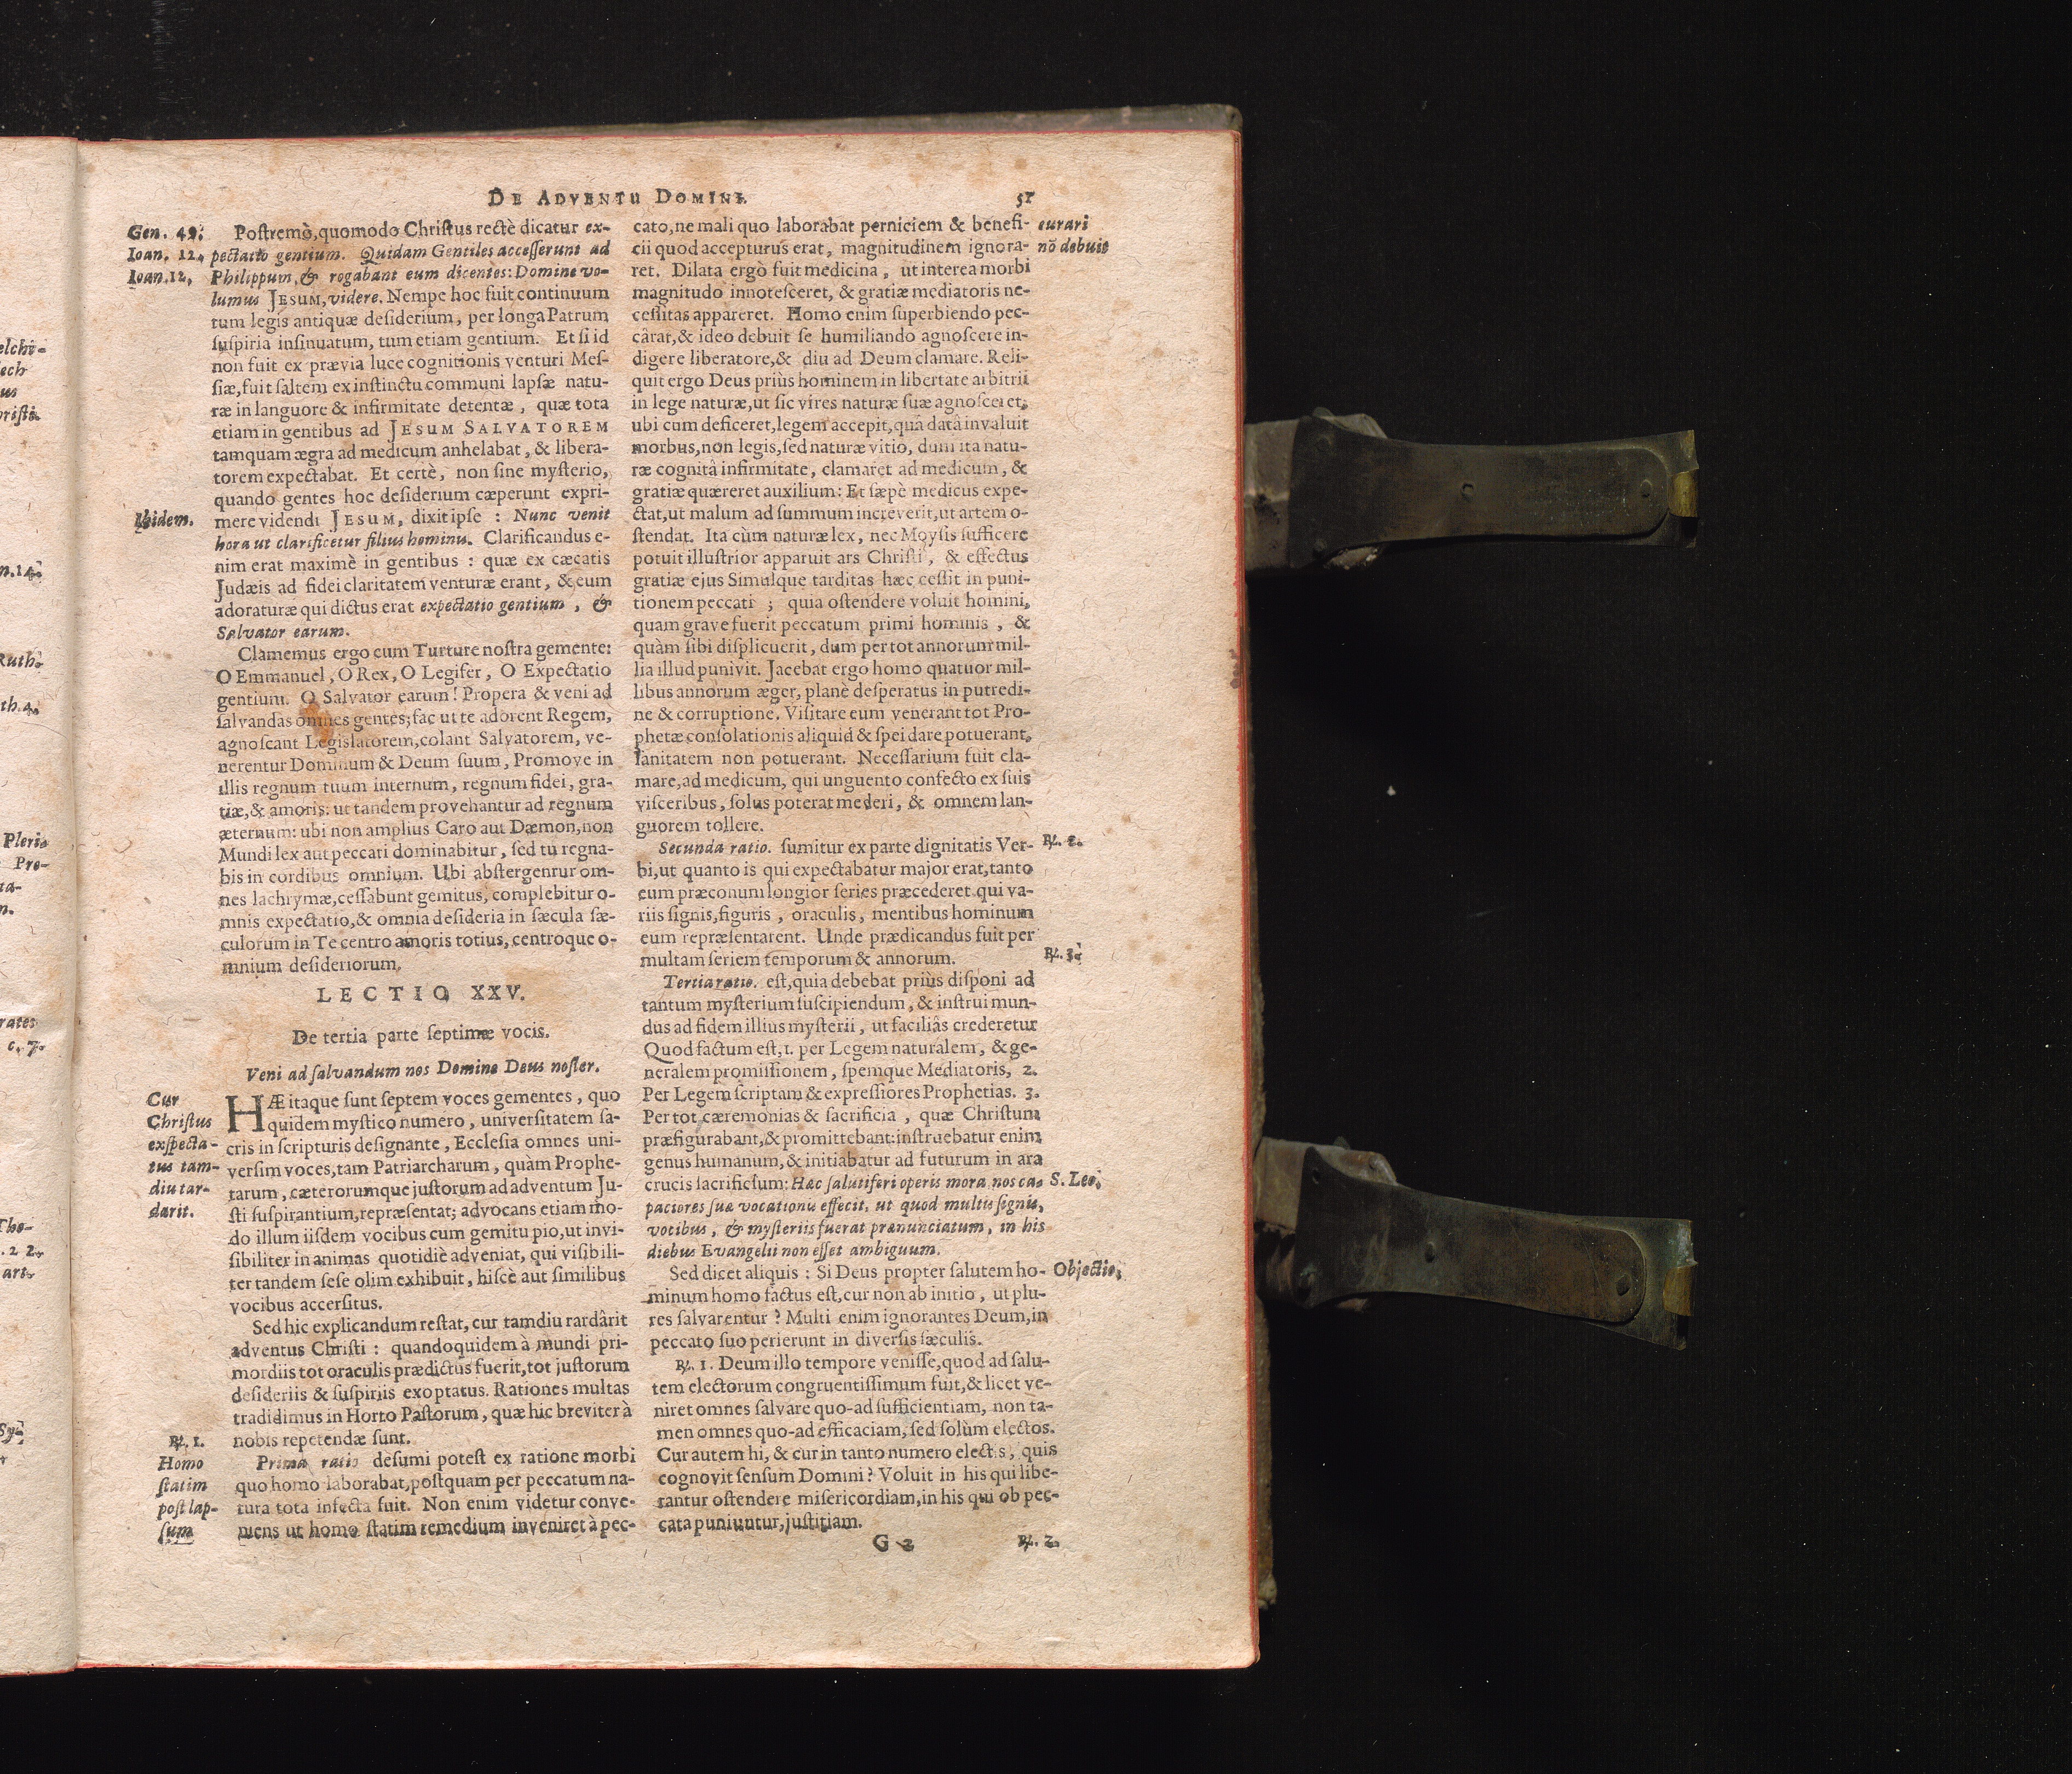 DE ADVENTU DOMINI.
51
Gen. 49.
Ioan. 12.
Ioan. 12.
Postremò, quomodo Christus rectè dicatur ex-
pectatio gentium. Quidam Gentiles accesserunt ad
Philippum, & rogabant eum dicentes: Domine vo-
lumus JESUM, videre. Nempe hoc fuit continuum
tum legis antiquæ desiderium, per longa Patrum
suspiria insinuatum, tum etiam gentium. Et si id
non fuit ex prævia luce cognitionis venturi Mes-
siæ, fuit saltem ex instinctu communi lapsæ natu-
ræ in languore & infirmitate detentæ, quæ tota
etiam in gentibus ad JESUM SALVATOREM
tamquam ægra ad medicum anhelabat, & libera-
torem expectabat. Et certè, non sine mysterio,
quando gentes hoc desiderium cæperunt expri-
Ibidem.
mere videndi JESUM, dixit ipse : Nunc venit
hora ut clarificetur filius hominis. Clarificandus e-
nim erat maximè in gentibus : quæ ex cæcatis
Judæis ad fidei claritatem venturæ erant, & eum
adoraturæ qui dictus erat expectatio gentium, &
Salvator earum.
Clamemus ergo cum Turture nostra gemente:
O Emmanuel, O Rex, O Legifer, O Expectatio
gentium. O Salvator earum! Propera & veni ad
salvandas omnes gentes; fac ut te adorent Regem,
agnoscant Legislatorem, colant Salvatorem, ve-
nerentur Dominum & Deum suum, Promove in
illis regnum tuum internum, regnum fidei, gra-
tiæ, & amoris: ut tandem provehantur ad regnum
æternum: ubi non amplius Caro aut Dæmon, non
Mundi lex aut peccati dominabitur, sed tu regna-
bis in cordibus omnium. Ubi abstergentur om-
nes lachrymæ, cessabunt gemitus, complebitur o-
mnis expectatio, & omnia desideria in sæcula sæ-
culorum in Te centro amoris totius, centroque o-
mnium desideriorum.
LECTIO XXV.
De tertia parte septimæ vocis.
Veni ad salvandum nos Domine Deus noster.
Cur
Christus
exspecta-
tus tam-
diu tar-
darit.
HÆ itaque sunt septem voces gementes, quo
quidem mystico numero, universitatem sa-
cris in scripturis designante, Ecclesia omnes uni-
versim voces, tam Patriarcharum, quàm Prophe-
tarum, cæterorumque justorum ad adventum Ju-
sti suspirantium, repræsentat; advocans etiam mo-
do illum iisdem vocibus cum gemitu pio, ut invi-
sibiliter in animas quotidiè adveniat, qui visibili-
ter tandem sese olim exhibuit, hiscè aut similibus
vocibus accersitus.
Sed hic explicandum restat, cur tamdiu rardârit
adventus Christi : quandoquidem à mundi pri-
mordiis tot oraculis prædictus fuerit, tot justorum
desideriis & suspiriis exoptatus. Rationes multas
tradidimus in Horto Pastorum, quæ hic breviter à
nobis repetendæ sunt.
℞. 1.
Homo
statim
post lap-
sum
Prima ratio desumi potest ex ratione morbi
quo homo laborabat, postquam per peccatum na-
tura tota infecta fuit. Non enim videtur conve-
niens ut homo statim remedium inveniret à pec-
cato, ne mali quo laborabat perniciem & benefi-
cii quod accepturus erat, magnitudinem ignora-
curari
nō debuit
ret. Dilata ergò fuit medicina, ut interea morbi
magnitudo innotesceret, & gratiæ mediatoris ne-
cessitas appareret. Homo enim superbiendo pec-
cârat, & ideo debuit se humiliando agnoscere in-
digere liberatore, & diu ad Deum clamare. Reli-
quit ergo Deus priùs hominem in libertate arbitrii
in lege naturæ, ut sic vires naturæ suæ agnosceret;
ubi cum deficeret, legem accepit, quâ datâ invaluit
morbus, non legis, sed naturæ vitio, dum ita natu-
ræ cognitâ infirmitate, clamaret ad medicum, &
gratiæ quæreret auxilium: Et sæpè medicus expe-
ctat, ut malum ad summum increverit, ut artem o-
stendat. Ita cùm naturæ lex, nec Moysis sufficere
potuit illustrior apparuit ars Christi, & effectus
gratiæ ejus Simulque tarditas hæc cessit in puni-
tionem peccati ; quia ostendere voluit homini,
quam grave fuerit peccatum primi hominis, &
quàm sibi displicuerit, dum per tot annorum mil-
lia illud punivit. Jacebat ergo homo quatuor mil-
libus annorum æger, planè desperatus in putredi-
ne & corruptione. Visitare eum venerant tot Pro-
phetæ consolationis aliquid & spei dare potuerant,
sanitatem non potuerant. Necessarium fuit cla-
mare, ad medicum, qui unguento confecto ex suis
visceribus, solus poterat mederi, & omnem lan-
guorem tollere.
℞. 2.
Secunda ratio. sumitur ex parte dignitatis Ver-
bi, ut quanto is qui expectabatur major erat, tanto
eum præconum longior series præcederet qui va-
riis signis, figuris, oraculis, mentibus hominum
eum repræsentarent. Unde prædicandus fuit per
multam seriem temporum & annorum.
℞. 3.
Tertia ratio. est, quia debebat priùs disponi ad
tantum mysterium suscipiendum, & instrui mun-
dus ad fidem illius mysterii, ut faciliâs crederetur
Quod factum est, 1. per Legem naturalem, & ge-
neralem promissionem, spemque Mediatoris, 2.
Per Legem scriptam & expressiores Prophetias. 3.
Per tot cæremonias & sacrificia, quæ Christum
præfigurabant, & promittebant: instruebatur enim
genus humanum, & initiabatur ad futurum in ara
crucis sacrificium: Hæc salutiferi operis mora nos ca-
S. Leo.
paciores suæ vocationis effecit, ut quod multis signis,
vocibus, & mysteriis fuerat prænunciatum, in his
diebus Evangelii non esset ambiguum.
Sed dicet aliquis : Si Deus propter salutem ho-
Objectio.
minum homo factus est, cur non ab initio, ut plu-
res salvarentur ? Multi enim ignorantes Deum, in
peccato suo perierunt in diversis sæculis.
℞. 1. Deum illo tempore venisse, quod ad salu-
tem electorum congruentissimum fuit, & licet ve-
niret omnes salvare quo-ad sufficientiam, non ta-
men omnes quo-ad efficaciam, sed solùm electos.
Cur autem hi, & cur in tanto numero electis, quis
cognovit sensum Domini? Voluit in his qui libe-
rantur ostendere misericordiam, in his qui ob pec-
cata puniuntur, justitiam.
G 2
℞. 2.